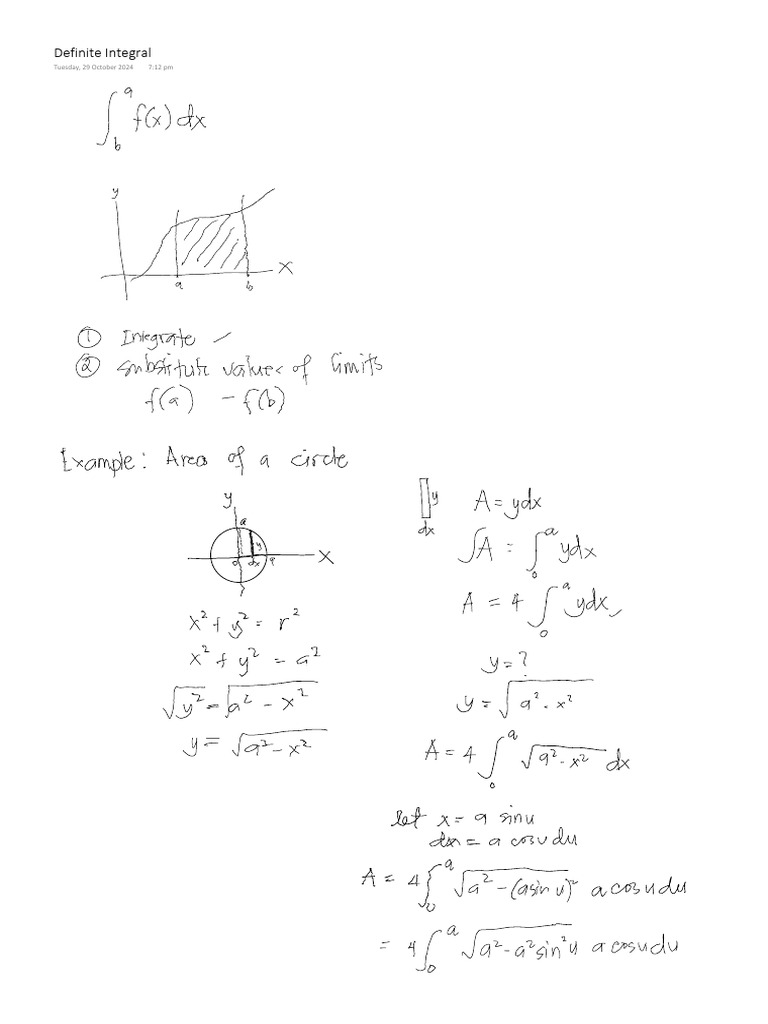 Definite Integral
Tuesday, 29 October 2024 7:12 pm
∫_b^a f(x) dx
y
x
a b
① Integrate ✓
② substitute values of limits
f(a) - f(b)
Example: Area of a circle
y
a
y
x
o dx a
x² + y² = r²
x² + y² = a²
√y² = √a² - x²
y = √a² - x²
y
dx
A = ydx
∫A = ∫_0^a ydx
A = 4 ∫_0^a ydx
y = ?
y = √a² - x²
A = 4 ∫_0^a √a² - x² dx
let x = a sin u
dx = a cos u du
A = 4 ∫_0^a √a² - (a sin u)² a cos u du
= 4 ∫_0^a √a² - a² sin² u a cos u du